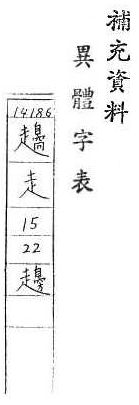 補充資料
異體字表
14186
走
15
22